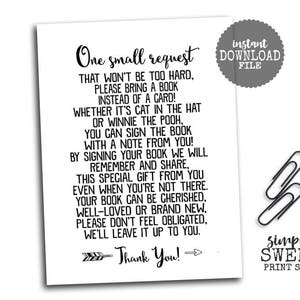 One small request
THAT WON'T BE TOO HARD,
PLEASE BRING A BOOK
INSTEAD OF A CARD!
WHETHER IT'S CAT IN THE HAT
OR WINNIE THE POOH,
YOU CAN SIGN THE BOOK
WITH A NOTE FROM YOU!
BY SIGNING YOUR BOOK WE WILL
REMEMBER AND SHARE,
THIS SPECIAL GIFT FROM YOU
EVEN WHEN YOU'RE NOT THERE.
YOUR BOOK CAN BE CHERISHED,
WELL-LOVED OR BRAND NEW,
PLEASE DON'T FEEL OBLIGATED,
WE'LL LEAVE IT UP TO YOU.
Thank You!
instant
DOWNLOAD
FILE
simp
SWE
PRINT S